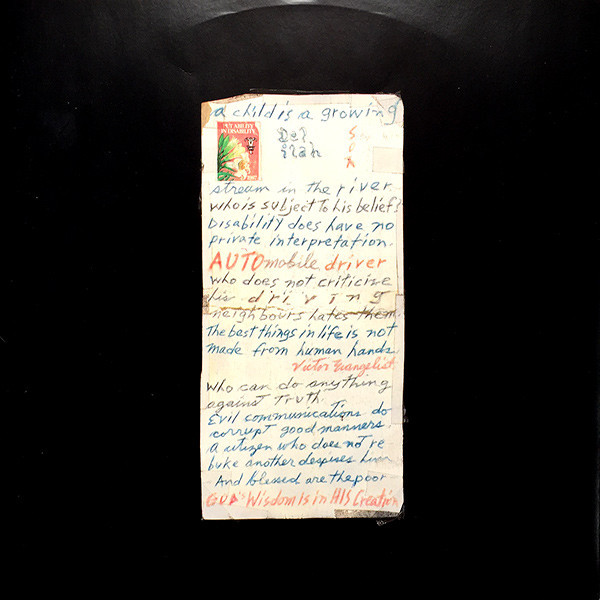 a child is a growing
PUT ABILITY
IN DISABILITY
stream in the river
who is subject To his beliefs
Disability does have no
private interpretation.
AUTOmobile driver
who does not criticise
his driving
neighbours hates them.
The best things in life is not
made from human hands
Victor Evangelist.
Who can do anything
against Truth.
Evil communications do
corrupt good manners.
a citizen who does not re
buke another despises him
And blessed are the poor
GOD's Wisdom is in HIS Creation